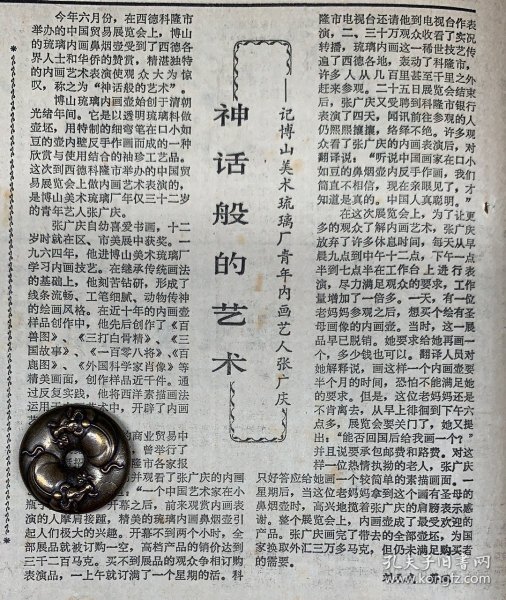 神话般的艺术
——记博山美术琉璃厂青年内画艺人张广庆
今年六月份，在西德科隆市
举办的中国贸易展览会上，博山
的琉璃内画鼻烟壶受到了西德各
界人士和华侨的赞赏，精湛独特
的内画艺术表演使观众大为惊
叹，称之为“神话般的艺术”。
博山琉璃内画壶始创于清朝
光绪年间。它是以透明琉璃料做
壶坯，用特制的细弯笔在口小如
豆的壶内壁反手作画而成的一种
欣赏与使用结合的袖珍工艺品。
这次到西德科隆市举办的中国贸
易展览会上做内画艺术表演的，
是博山美术琉璃厂年仅三十二岁
的青年艺人张广庆。
张广庆自幼喜爱书画，十二
岁时就在区、市美展中获奖。一
九六四年，他进博山美术琉璃厂
学习内画技艺。在继承传统画法
的基础上，他刻苦钻研，形成了
线条流畅、工笔细腻、动物传神
的绘画风格。在近十年的内画壶
样品创作中，他先后创作了《百
兽图》、《三打白骨精》、《三
国故事》、《一百零八将》、《百
鹿图》、《外国科学家肖像》等
精美画面，创作样品近千件。通
过反复实践，他将西洋素描画法
运用于内画艺术中，开辟了内画
商业贸易中
曾举行了
隆市各家报
并观看了张广庆的内画
“一个中国艺术家在小
瓶子
开幕之后，前来观赏内画表
演的人摩肩接踵，精美的琉璃内画鼻烟壶引
起人们极大的兴趣。开幕不到两个小时，全
部展品就被订购一空，高档产品的销价达到
三千二百马克。买不到展品的观众争相订购
表演品，一上午就订满了一个星期的活。科
隆市电视台还请他到电视台作表
演，二、三十万观众收看了实况
转播，琉璃内画这一稀世技艺传
遍了西德各地，轰动了科隆市，
许多人从几百里甚至千里之外
赶来参观。二十五日展览会结束
后，张广庆又受聘到科隆市银行
表演了四天，闻讯前往参观的人
仍熙熙攘攘，络绎不绝。许多观
众看了张广庆的内画表演后，对
翻译说：“听说中国画家在口小
如豆的鼻烟壶内反手作画，我们
简直不相信，现在亲眼见了，才
知道是真的。中国人真聪明。”
在这次展览会上，为了让更
多的观众了解内画艺术，张广庆
放弃了许多休息时间，每天从早
晨九点到中午十二点，下午一点
半到七点半在工作台上进行表
演，尽力满足观众的要求，工作
量增加了一倍多。一天，有一位
老妈妈参观之后，想买个绘有圣
母画像的内画壶。当时，这一展
品早已脱销。她要求给她再画一
个，多少钱也可以。翻译人员对
她解释说，画这样一个内画壶要
半个月的时间，恐怕不能满足她
的要求。但是，这位老妈妈还是
不肯离去，从早上徘徊到下午六
点多，展览会要关门了，她又提
出：“能否回国后给我画一个？”
并且说要承包邮费和路费。对这
样一位热情执拗的老人，张广庆
只好答应给她画一个较简单的素描画面。一
星期后，当这位老妈妈拿到这个画有圣母的
鼻烟壶时，高兴地搅着张广庆的肩膀表示感
谢。整个展览会上，内画壶成了最受欢迎的
产品。张广庆画完了带去的全部壶坯，为国
家换取外汇三万多马克，但仍未满足购买者
的需要。
孔夫子旧书网